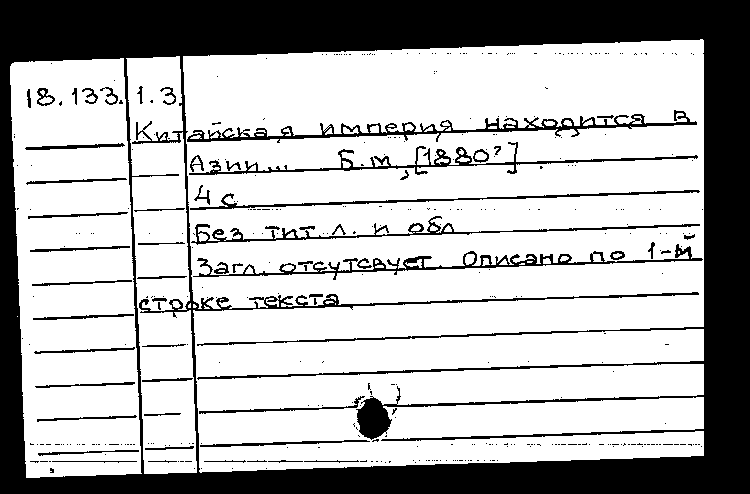 18.133.1.3.
Китайская империя находится в
Азии... Б.м., [1880?].
4 с
Без тит. л. и обл
Загл. отсутсвует. Описано по 1-й
строке текста.